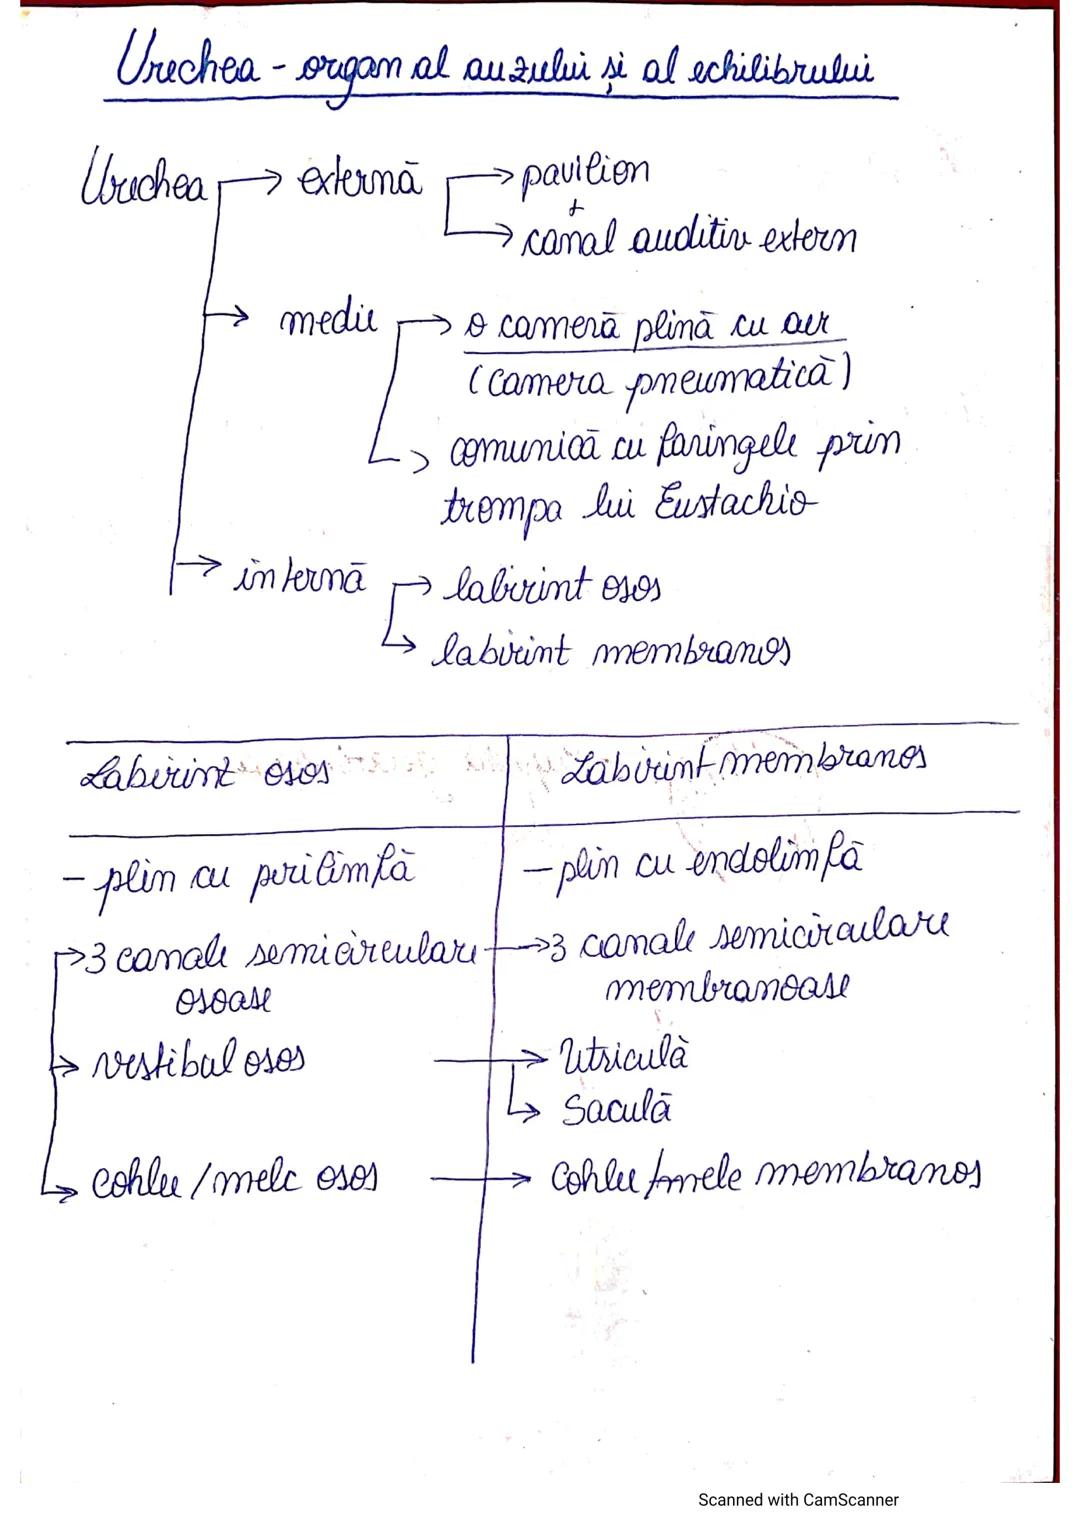 Urechea - organ al auzului și al echilibrului
Urechea → externă → pavilion
+
→ canal auditiv extern
→ medie → o cameră plină cu aer
(camera pneumatică)
→ comunică cu faringele prin
trompa lui Eustachio
→ internă → labirint osos
→ labirint membranos
Labirint osos Labirint membranos
- plin cu perilimfă - plin cu endolimfă
→ 3 canale semicirculare → 3 canale semicirculare
osoase membranoase
→ vestibul osos → Utriculă
→ Saculă
→ cohlee / melc osos → Cohlee / melc membranos
Scanned with CamScanner